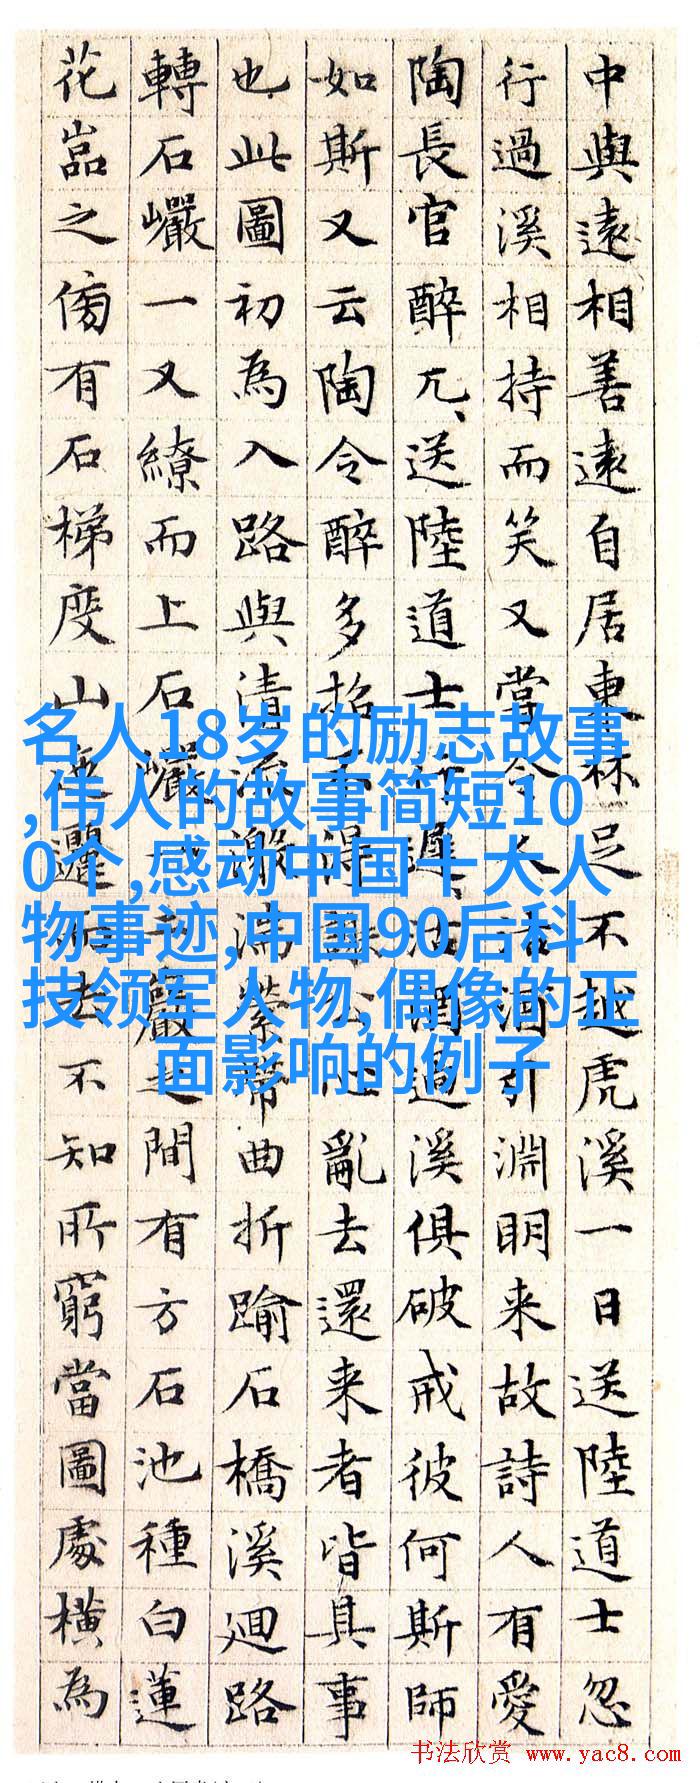 中與遠相善遠自居東林足不越虎溪一日送陸道士忽
行過溪相持而笑又當令人沽酒引淵明来故詩人有愛
陶長官醉兀、送陸道士行遲、沽酒過溪俱破戒彼何斯師
如斯又云陶令醉多招不得謝公心亂去還来者皆其事
也此圖初為入路與清流激湍縈帶曲折踰石橋溪廻路
轉石巖一又繚而上石巖巖之間有方石池種白蓮
花嵓之傍有石梯度山迤邐而去不知所窮當圖處横為
名人18岁的励志故事
,伟人的故事简短10
0个,感动中国十大人
物事迹,中国90后科
技领军人物,偶像的正
面影响的例子
书法欣赏 www.yac8.com